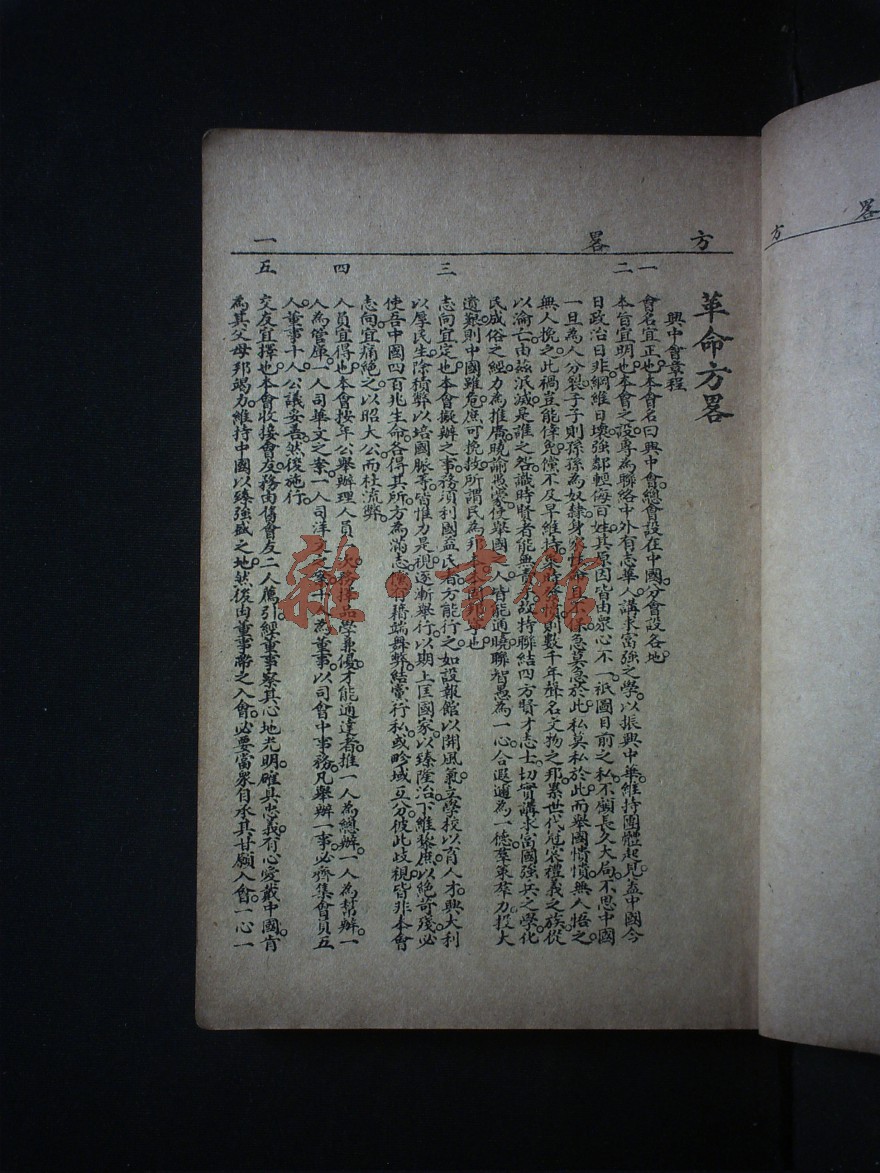 方畧 一
一
二
三
四
五
革命方畧
興中會章程
會名宜正也。本會名曰興中會。總會設在中國。分會設各地
本旨宜明也。本會之設。專為聯絡中外有志華人。講求富強之學。以振興中華。維持團體起見。蓋中國今
日政治日非。綱維日壞。強鄰輕侮百姓。其原因皆由衆心不一。祇圖目前之私。不顧長久大局。不思中國
一旦為人分裂。子子則孫孫為奴隸。身家性命且不保。急莫急於此。私莫私於此。而舉國憒憒。無人悟之。
無人挽之。此禍豈能倖免。儻不及早維持。乘時發憤。則數千年聲名文物之邦。累世代冠裳禮義之族。從
以淪亡。由茲泯滅。是誰之咎。識時賢者。能無責乎。故特聯結四方賢才志士。切實講求富國強兵之學。化
民成俗之經。力為推廣。曉諭愚蒙。使舉國之人皆能通曉。聯智愚為一心。合遐邇為一德。羣策羣力。投大
遺艱。則中國雖危。庶可挽救。所謂民為邦本。本固邦寧也
志向宜定也。本會擬辦之事。務須利國益民者。方能行之。如設報館以開風氣。立學校以育人才。興大利
以厚民生。除積弊以培國脈等。皆惟力是視。逐漸舉行。以期上匡國家。以臻隆治。下維黎庶。以絕苛殘。必
使吾中國四百兆生命。各得其所。方為滿志。倘有藉端舞弊。結黨行私。或畛域互分。彼此歧視。皆非本會
志向。宜痛絕之。以昭大公。而杜流弊。
人員宜得也。本會按年公舉辦理人員一次。務擇品學兼優。才能通達者。推一人為總辦。一人為幫辦。一
人為管庫。一人司華文之案。一人司洋文之案。十人為董事。以司會中事務。凡舉辦一事。必齊集會員五
人董事十人。公議妥善。然後施行。
交友宜擇也。本會收接會友。務由舊會友二人薦引。經董事察其心地光明。確具忠義。有心愛戴中國。肯
為其父母邦竭力。維持中國以臻強盛之地。然後由董事帶之入會。必要當衆自承其甘願入會。一心一
方畧
雜·書館